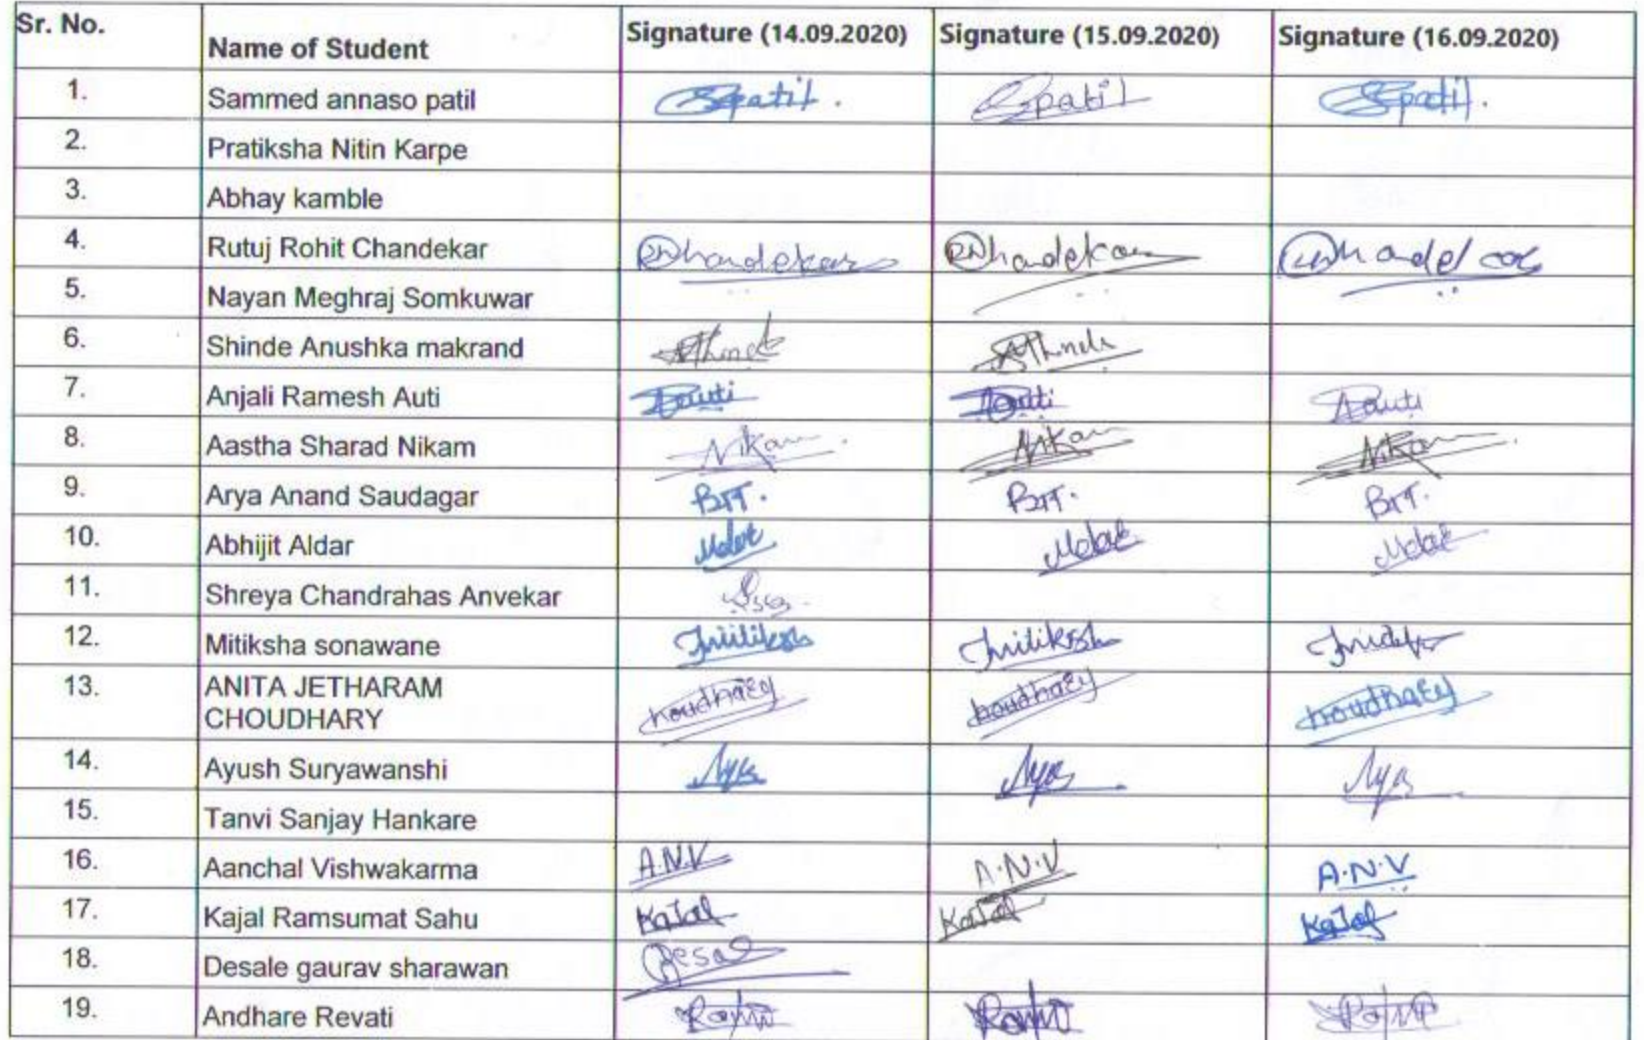 Sr. No. Name of Student Signature (14.09.2020) Signature (15.09.2020) Signature (16.09.2020)
1. Sammed annaso patil Spatil. Spatil Spatil.
2. Pratiksha Nitin Karpe
3. Abhay kamble
4. Rutuj Rohit Chandekar
5. Nayan Meghraj Somkuwar
6. Shinde Anushka makrand
7. Anjali Ramesh Auti Aauti Aauti Aauti
8. Aastha Sharad Nikam Nikam Nikam Nikam
9. Arya Anand Saudagar
10. Abhijit Aldar
11. Shreya Chandrahas Anvekar
12. Mitiksha sonawane
13. ANITA JETHARAM
CHOUDHARY houdhary houdhary houdhary
14. Ayush Suryawanshi
15. Tanvi Sanjay Hankare
16. Aanchal Vishwakarma A.N.V A.N.V A.N.V
17. Kajal Ramsumat Sahu Kajal Kajal Kajal
18. Desale gaurav sharawan
19. Andhare Revati